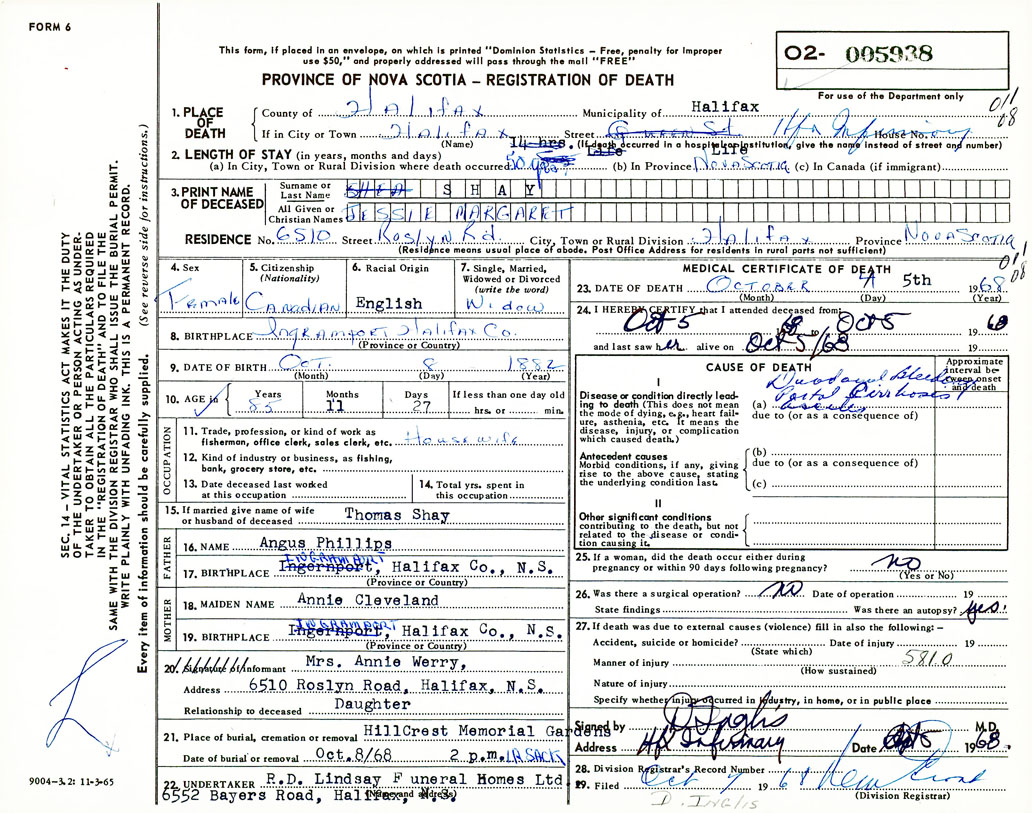 FORM 6
This form, if placed in an envelope, on which is printed "Dominion Statistics – Free, penalty for improper
use $50," and properly addressed will pass through the mail "FREE"
PROVINCE OF NOVA SCOTIA – REGISTRATION OF DEATH
O2- 005938
For use of the Department only
011
08
1. PLACE OF DEATH
County of Halifax Municipality of Halifax
If in City or Town Halifax Street Queen St Hfx Infirmary House No.
(Name) (If death occurred in a hospital or institution, give the name instead of street and number)
2. LENGTH OF STAY (in years, months and days) 14 hrs. Life Life
(a) In City, Town or Rural Division where death occurred 50 yrs. (b) In Province Nova Scotia (c) In Canada (if immigrant)
3. PRINT NAME OF DECEASED
Surname or Last Name SHEA SHAY
All Given or Christian Names JESSIE MARGARETT
RESIDENCE No. 6510 Street Roslyn Rd. City, Town or Rural Division Halifax Province Nova Scotia
(Residence means usual place of abode. Post Office Address for residents in rural parts not sufficient)
011
08
4. Sex Female
5. Citizenship (Nationality) Canadian
6. Racial Origin English
7. Single, Married, Widowed or Divorced (write the word) Widow
8. BIRTHPLACE Ingramport Halifax Co.
(Province or Country)
9. DATE OF BIRTH Oct. 8 1882
(Month) (Day) (Year)
10. AGE in Years 85 Months 11 Days 27 If less than one day old
hrs. or min.
OCCUPATION
11. Trade, profession, or kind of work as
fisherman, office clerk, sales clerk, etc. Housewife
12. Kind of industry or business, as fishing,
bank, grocery store, etc.
13. Date deceased last worked
at this occupation
14. Total yrs. spent in
this occupation
15. If married give name of wife
or husband of deceased Thomas Shay
FATHER
16. NAME Angus Phillips
INGRAMPORT
17. BIRTHPLACE Ingernport, Halifax Co., N.S.
(Province or Country)
MOTHER
18. MAIDEN NAME Annie Cleveland
INGRAMPORT
19. BIRTHPLACE Ingernport, Halifax Co., N.S.
(Province or Country)
20. Signature of Informant Mrs. Annie Werry,
Address 6510 Roslyn Road, Halifax, N.S.
Relationship to deceased Daughter
21. Place of burial, cremation or removal HillCrest Memorial Gardens
Date of burial or removal Oct.8/68 2 p.m.
22. UNDERTAKER R.D. Lindsay Funeral Homes Ltd.
6552 Bayers Road, Halifax, N.S.
(Name and address)
MEDICAL CERTIFICATE OF DEATH
23. DATE OF DEATH October 4 5th 1968
(Month) (Day) (Year)
24. I HEREBY CERTIFY that I attended deceased from:
Oct 5 68 to Oct 5 19 68
and last saw her alive on Oct 5/68 19
CAUSE OF DEATH
Approximate interval between onset and death
I
Disease or condition directly leading
to death (This does not mean
the mode of dying, e.g., heart failure,
asthenia, etc. It means the
disease, injury, or complication
which caused death.)
Duodenal Bleeding
Portal Cirrhosis
(a)
due to (or as a consequence of)
Antecedent causes
Morbid conditions, if any, giving
rise to the above cause, stating
the underlying condition last.
(b)
due to (or as a consequence of)
(c)
II
Other significant conditions
contributing to the death, but not
related to the disease or condition
causing it.
25. If a woman, did the death occur either during
pregnancy or within 90 days following pregnancy? no
(Yes or No)
26. Was there a surgical operation? no Date of operation 19
State findings Was there an autopsy? yes.
27. If death was due to external causes (violence) fill in also the following: –
Accident, suicide or homicide? Date of injury 19
(State which)
5810
Manner of injury
(How sustained)
Nature of injury
Specify whether injury occurred in industry, in home, or in public place
Signed by D Inglis M.D.
Address Hfx Infirmary Date Oct 5 1968.
28. Division Registrar's Record Number
29. Filed Oct 7 1968
(Division Registrar)
D. INGLIS
SEC. 14 – VITAL STATISTICS ACT MAKES IT THE DUTY
OF THE UNDERTAKER OR PERSON ACTING AS UNDERTAKER
TO OBTAIN ALL THE PARTICULARS REQUIRED
IN THE "REGISTRATION OF DEATH" AND TO FILE THE
SAME WITH THE DIVISION REGISTRAR WHO SHALL ISSUE THE BURIAL PERMIT.
WRITE PLAINLY WITH UNFADING INK. THIS IS A PERMANENT RECORD.
Every item of information should be carefully supplied. (See reverse side for instructions.)
9004-3.2: 11-3-65